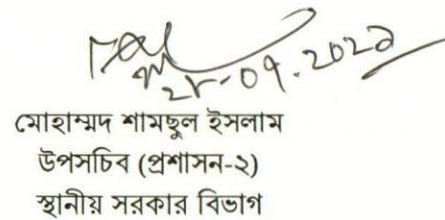 ২৮-০৭-২০২১
মোহাম্মদ শামছুল ইসলাম
উপসচিব (প্রশাসন-২)
স্থানীয় সরকার বিভাগ